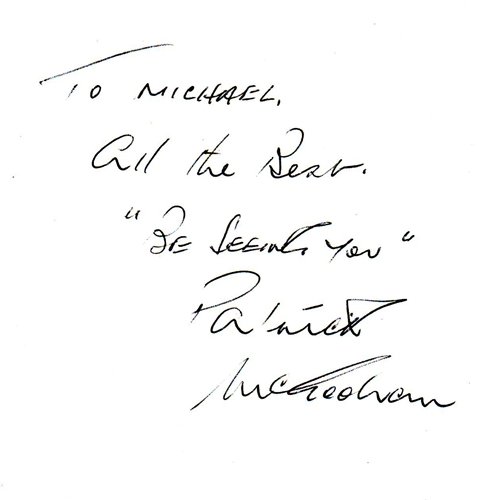 To MICHAEL.
All the Best.
"BE SEEING YOU"
Patrick
McGoohan